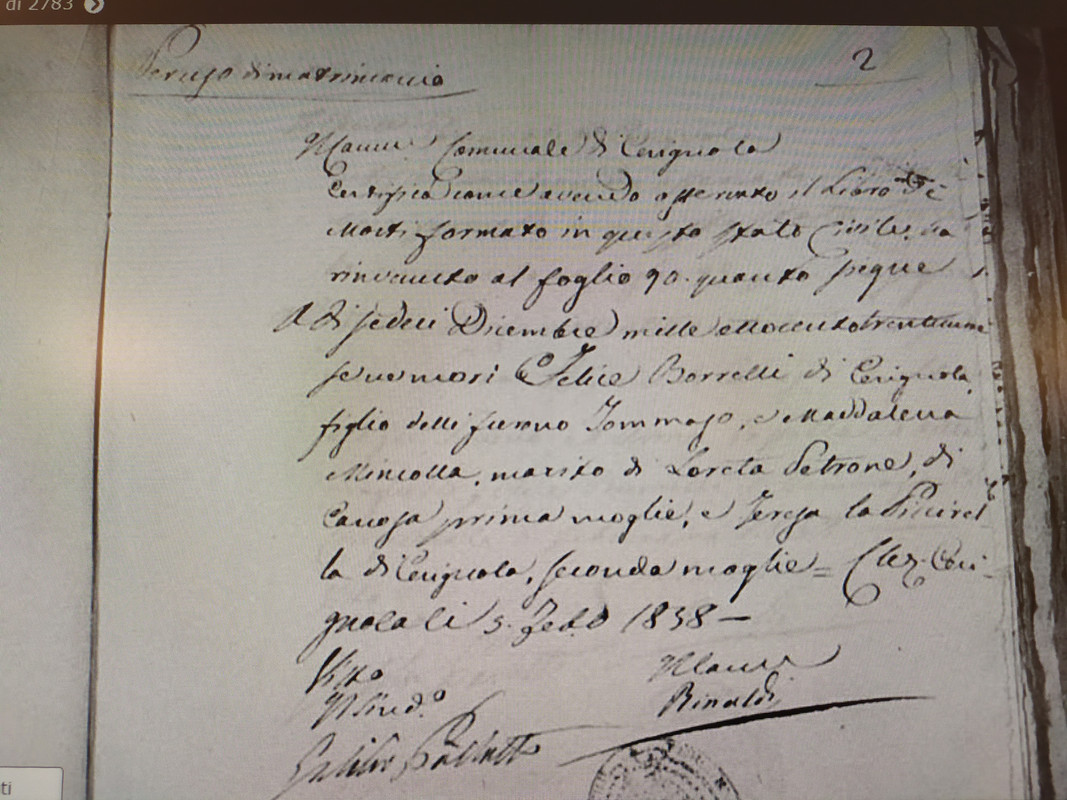 di 2783
Per uso di matrimonio
2
Comunale di Cerignola
Certifica come avendo osservato il Libro de
Morti formato in questo stato Civile, ha
rinvenuto al foglio 90. quanto segue
A dì sedeci Dicembre mille ottocento trentuno
se ne morì Felice Borrelli di Cerignola,
figlio delli furono Tommaso, e Maddalena
Mincolla, marito di Loreta Petrone, di
Canosa prima moglie, e Teresa la
la di Cerignola, seconda moglie = Ceri-
gnola li 5. Feb.o 1838 —
Visto
Il Sind.o
Rinaldi
ti